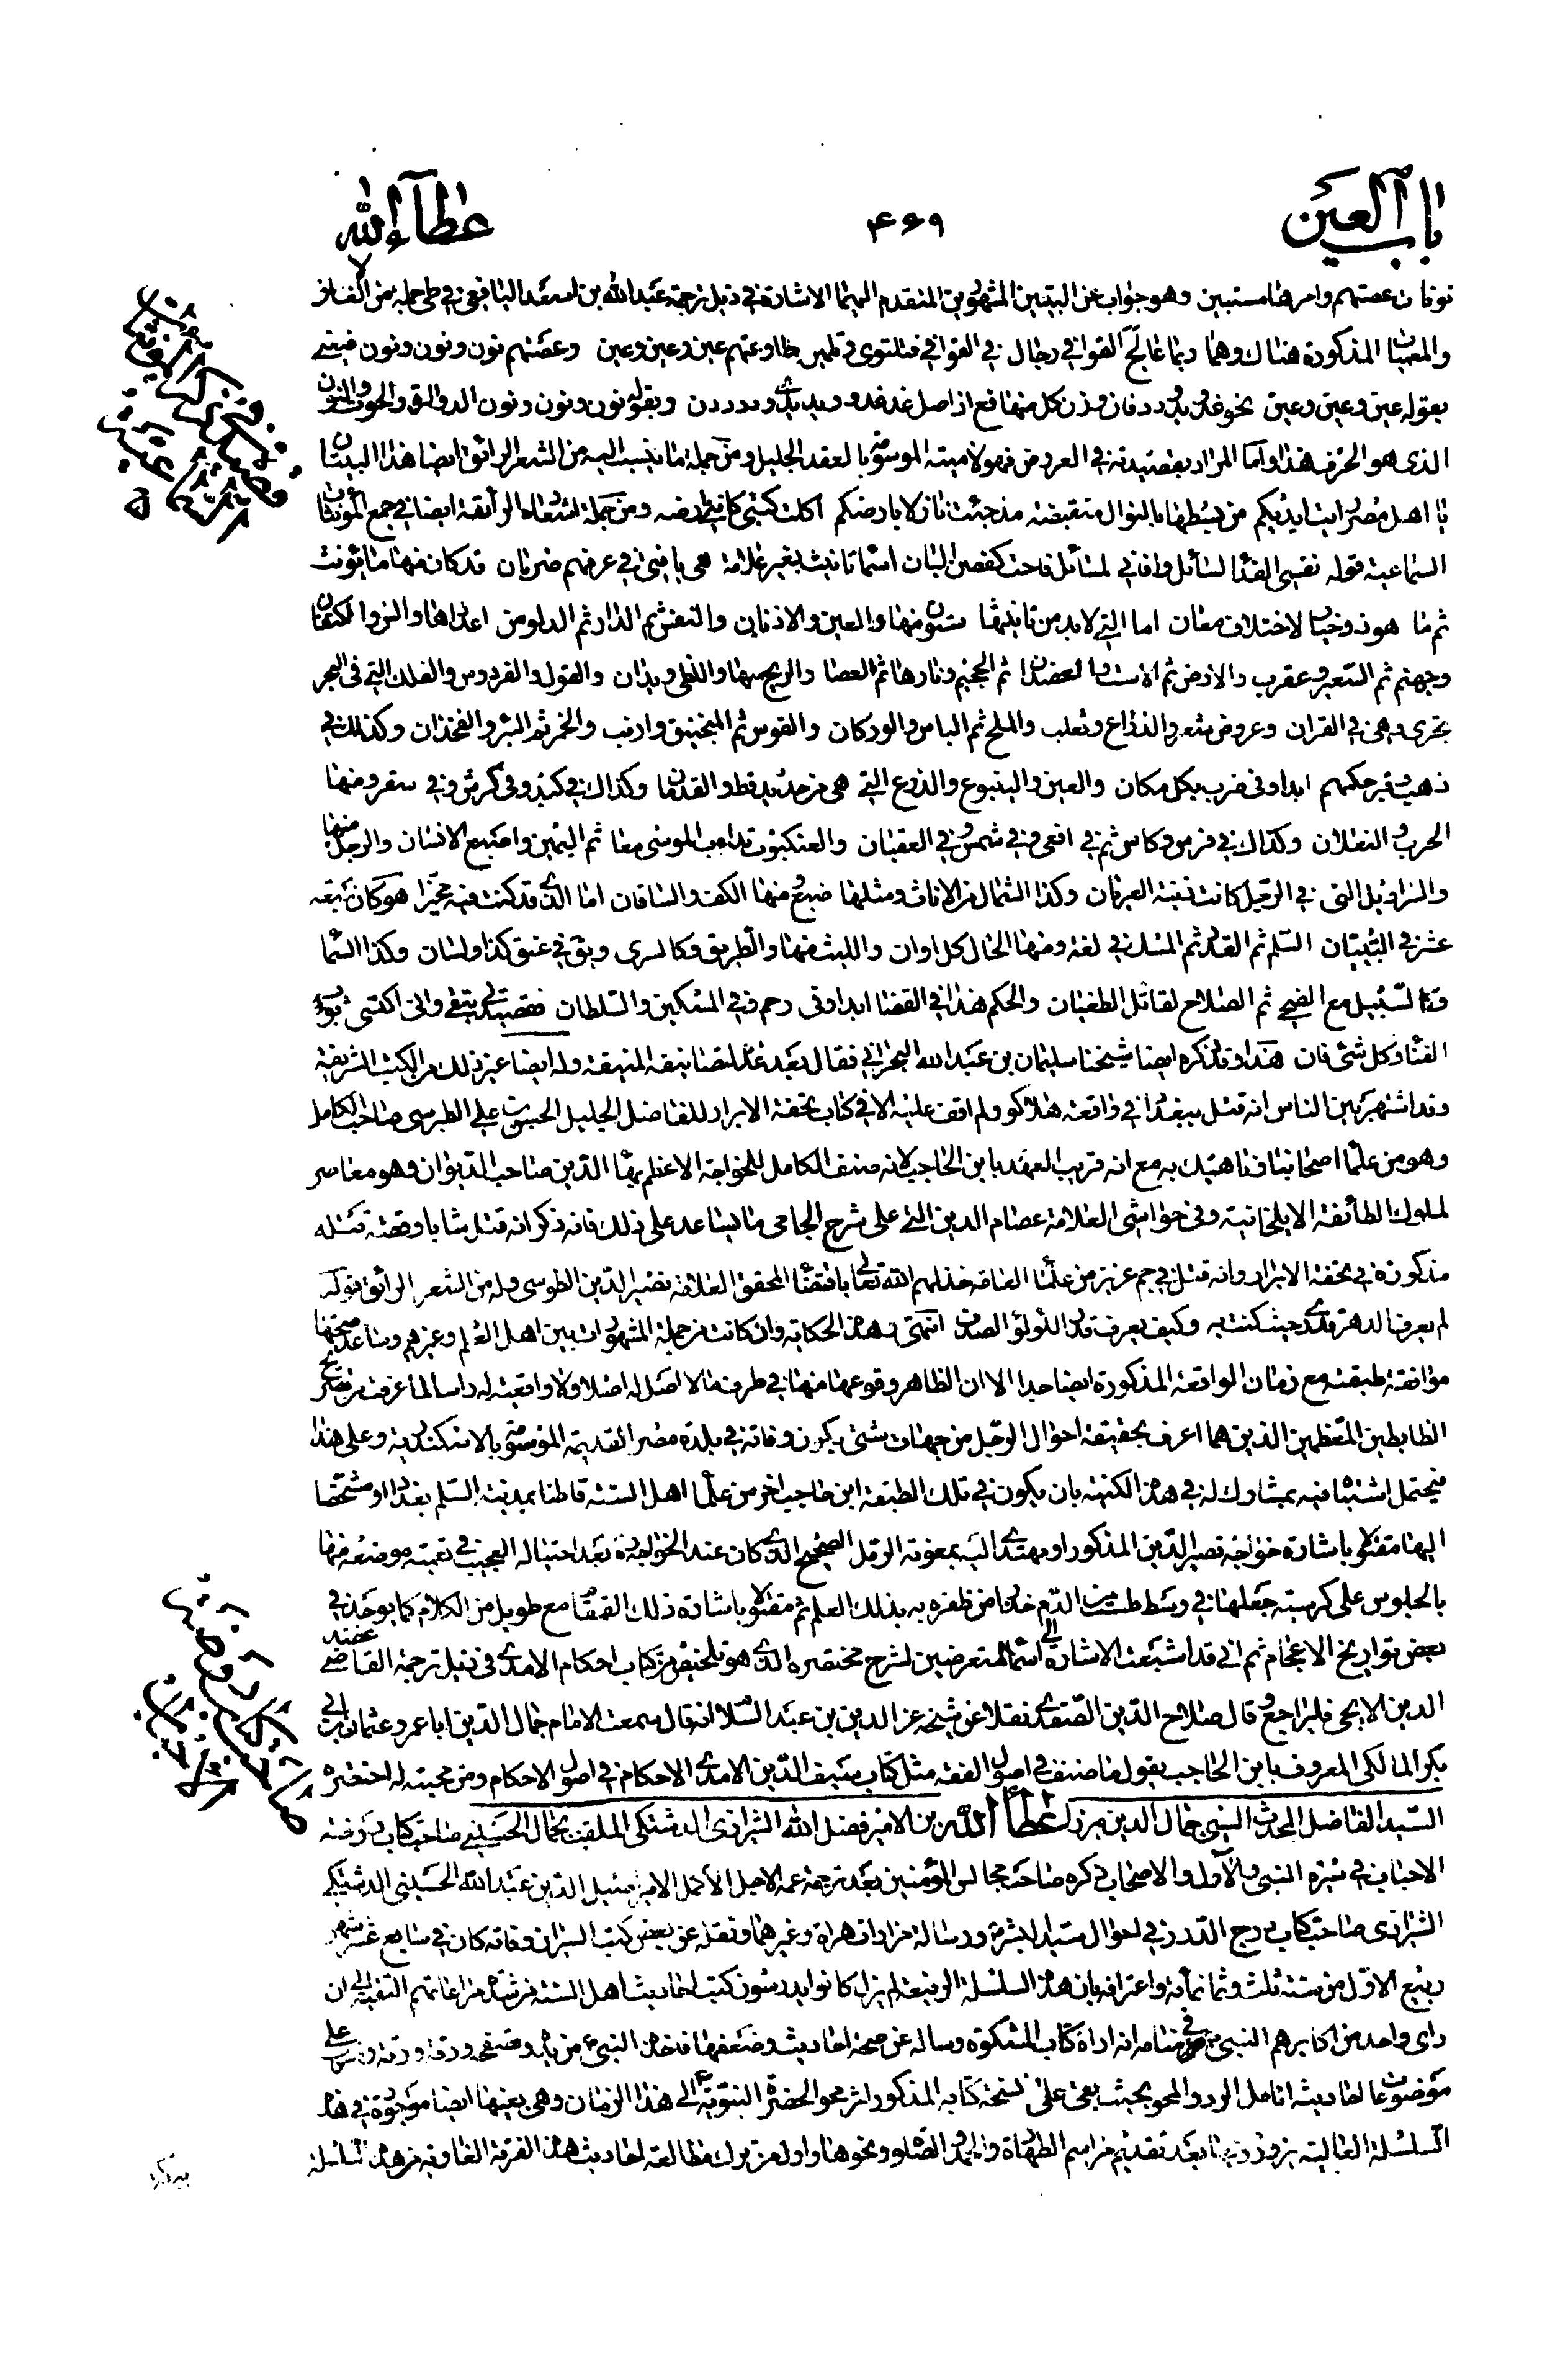 باب العين
۴۶۹
عطاء الله
نونات عصتهم وامرها مستبين وهو جواب عن البيتين المشهورين المتقدم اليهما الاشارة في ذيل ترجمة عبد الله بن اسعد اليافعي في طي جملة من الالغاز
والمعميات المذكورة هناك وهما ربما عالج القوافي رجال في القوافي فتلتوي وتلين طاوعتهم عين وعين وعين وعصتهم نون ونون ونون فيعنى
بقوله عين وعين وعين نحو غد ويد ودد فان وزن كل منها فع اذ اصل غد غدو ويد يدي ودد ددن وبقوله نون ونون ونون الدواة والحوت والنون
الذي هو الحرف هذا واما المراد بقصيدته في العروض فهو لاميته الموسومة بالعقد الجليل ومن جملة ما ينسب اليه من الشعر الرائق ايضا هذا البيتان
يا اهل مصر رايت ايديكم من بسطها بالنوال منقبضة مذ جئت نازلا بارضكم اكلت كتبي كانني ارضه ومن جملة اشعاره الرائقة ايضا في جمع المؤنثات
السماعية قوله نفسي الفداء لسائل وافاني لمسائل فاحت كغصن البان اسماء تانيث بغير علامة هي يا فتى في عرفهم ضربان قد كان منها ما يؤنث
ثم ما هو ذو خيار لاختلاف معان اما التي لا بد من تانيثها ستون منها العين والاذنان والنفس ثم الدار ثم الدلو من اعدادها والسن والكتفان
وجهنم ثم السعير وعقرب والارض ثم الاست والعضدان ثم الجحيم ونارها ثم العصا والريح منها واللظى ويدان والغول والفردوس والفلك التي في البحر
تجري وهي في القران وعروض شعر والذراع وثعلب والملح ثم الفاس والوركان والقوس ثم المنجنيق وارنب والخمر ثم البئر والفخذان وكذلك في
ذهب وفهر حكمهم ابدا وفي ضرب بكل مكان والعين والينبوع والدرع التي هي من حديد قط والقدمان وكذاك في كبد وفي كرش وفي سقر ومنها
الحرب والنعلان وكذاك في فرس وكاس ثم في افعى وفي شمس وفي العقبان والعنكبوت تداب والموسى معا ثم اليمين واصبع الانسان والرجل منها
والسراويل التي في الرجل كانت زينة العريان وكذا الشمال من الاناث ومثلها ضبع ومنها الكف والساقان اما الذي قد كنت فيه مخيرا هو كان سبعة
عشر في التبيان السلم ثم القدر ثم المسك في لغة ومنها الحال كل اوان والليث منها والطريق وكالسرى ويق في عنق كذا ولسان وكذا السماء
وكذا السبيل مع الضحى ثم السلاح لقاتل الطغيان والحكم هذا في القفا ابدا وفي رحم وفي السكين والسلطان فقصيدتي تبقى واني اكتسي ثوب
الفناء وكل شئ فان هذا وقد ذكره ايضا شيخنا سليمان بن عبد الله البحراني فقال بعد عد تصانيفه المنيفة وله ايضا غير ذلك من الكتب الشريفة
وقد اشتهر بين الناس انه قتل ببغداد في واقعة هلاكو ولم اقف عليه الا في كتاب تحفة الابرار للفاضل الجليل الحسن بن علي الطبرسي صاحب الكامل
وهو من علماء اصحابنا فناهيك به مع انه قريب العهد بابن الحاجب لانه صنف الكامل للخواجة الاعظم بهاء الدين صاحب الديوان وهو معاصر
لملوك الطائفة الايلخانية وفي حواشي العلامة عصام الدين التي على شرح الجامي ما يساعد على ذلك فانه ذكر انه قتل شابا وقصة قتله
مذكورة في تحفة الابرار وانه قتل في جم عزيز من علماء العامة خذلهم الله تعالى بافتاء المحقق العلامة نصير الدين الطوسي وله من الشعر الرائق قوله
لم يعرف الدهر قدري حيث كنت به وكيف يعرف قدر اللؤلؤ الصدف انتهى وهذه الحكاية وان كانت من جملة المشهورات بين اهل العلم وغيرهم وساعد صحتها
موافقة طبقته مع زمان الواقعة المذكورة ايضا جدا الا ان الظاهر وقوعها منها في طرف ما لا اصل له اصلا ولا واقعية له راسا لما عرفت من تصريح
الضابطين المعظمين الذين هما اعرف بحقيقة احوال الرجل من جهات شتى بكون وفاته في بلدة مصر القديمة الموسومة بالاسكندرية وعلى هذا
فيحتمل اشتباه فيه بمشارك له في هذه الكنية بان يكون في تلك الطبقة ابن حاجب اخر من علماء اهل السنة قاطنا بمدينة السلم بغداد او مشخصا
اليها مقتولا باشارة خواجه نصير الدين المذكور او مهتدى اليه بمعونة الرمل الصحيح الذي كان عند الخواجه ره بعد احتياله العجيب في تعمية موضعه منها
بالجلوس على كرسية جعلها في وسط طست من الدم حذرا من ظفره به بذلك العلم ثم مقتولا باشارة ذلك القمقام مع طويل من الكلام كما يوجد في
بعض تواريخ الاعجام ثم اني قد اشبعت الاشارة الى اسماء المتعرضين لشرح مختصره الذي هو تلخيص من كتاب احكام الامدي في ذيل ترجمة القاضي عضد
الدين الايجي فليراجع وقال صلاح الدين الصفدي نقلا عن شيخه عز الدين بن عبد السلام انه قال سمعت الامام جمال الدين ابا عمرو عثمان بن ابي
بكر المالكي المعروف بابن الحاجب يقول ما صنف في اصول الفقه مثل كتاب سيف الدين الامدي الاحكام في اصول الاحكام ومن محبته له اختصره
السيد الفاضل المحدث السني جمال الدين ميرزا عطاء الله بن الامير فضل الله الشيرازي الدشتكي الملقب بجمال الحسيني صاحب كتاب روضة
الاحباب في سيرة النبي والآل والاصحاب ذكره صاحب مجالس المؤمنين بعد ترجمة عمه الاجل الاكمل الامير سيد اصيل الدين عبد الله الحسيني الدشتكي
الشيرازي صاحب كتاب درج الدرر في احوال سيد البشر ورسالة مزارات هراة وغيرهما ونقله عن بعض كتب السير ان وفاته كان في سابع عشر شهر
ربيع الاول من سنة ثلث وثمانمأة واعترافه بان هذه السلسلة الرفيعة لم يزل كانوا يدرسون كتب احاديث اهل السنة من شدة مراعاتهم التقية الى ان
راى واحد من اكابرهم النبي ص في منامه انه اراه كتاب المشكوة وساله عن صحة احاديثه وضعفها فاخذه النبي ص من يده وتصفحه ورقة ورقة على
موضوعات احاديثه انامل الرد والمحو بحيث بقى على نسخة كتابه المذكور اثر محو الحضرة النبوية الى هذا الزمان وهي بعينها ايضا موجودة في هذه
السلسلة العالية يزورونها بعد تقديم مراسم الطهارة والحمد والصلوة ونحوها واول من ترك مطالعة احاديث هذه الفرقة الغاوية من هذه السلسلة